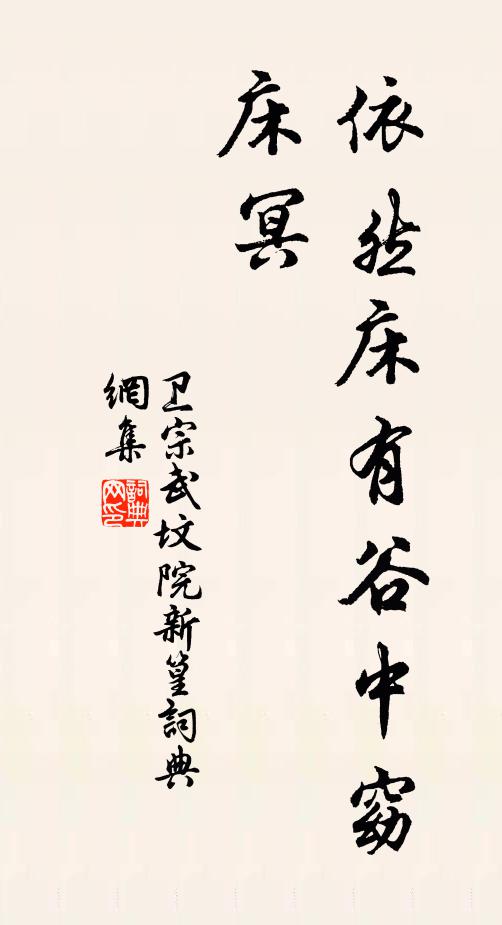 依然床有谷中窈
床冥
卫宗武坟院新篁詞典
網集
詞典
网印